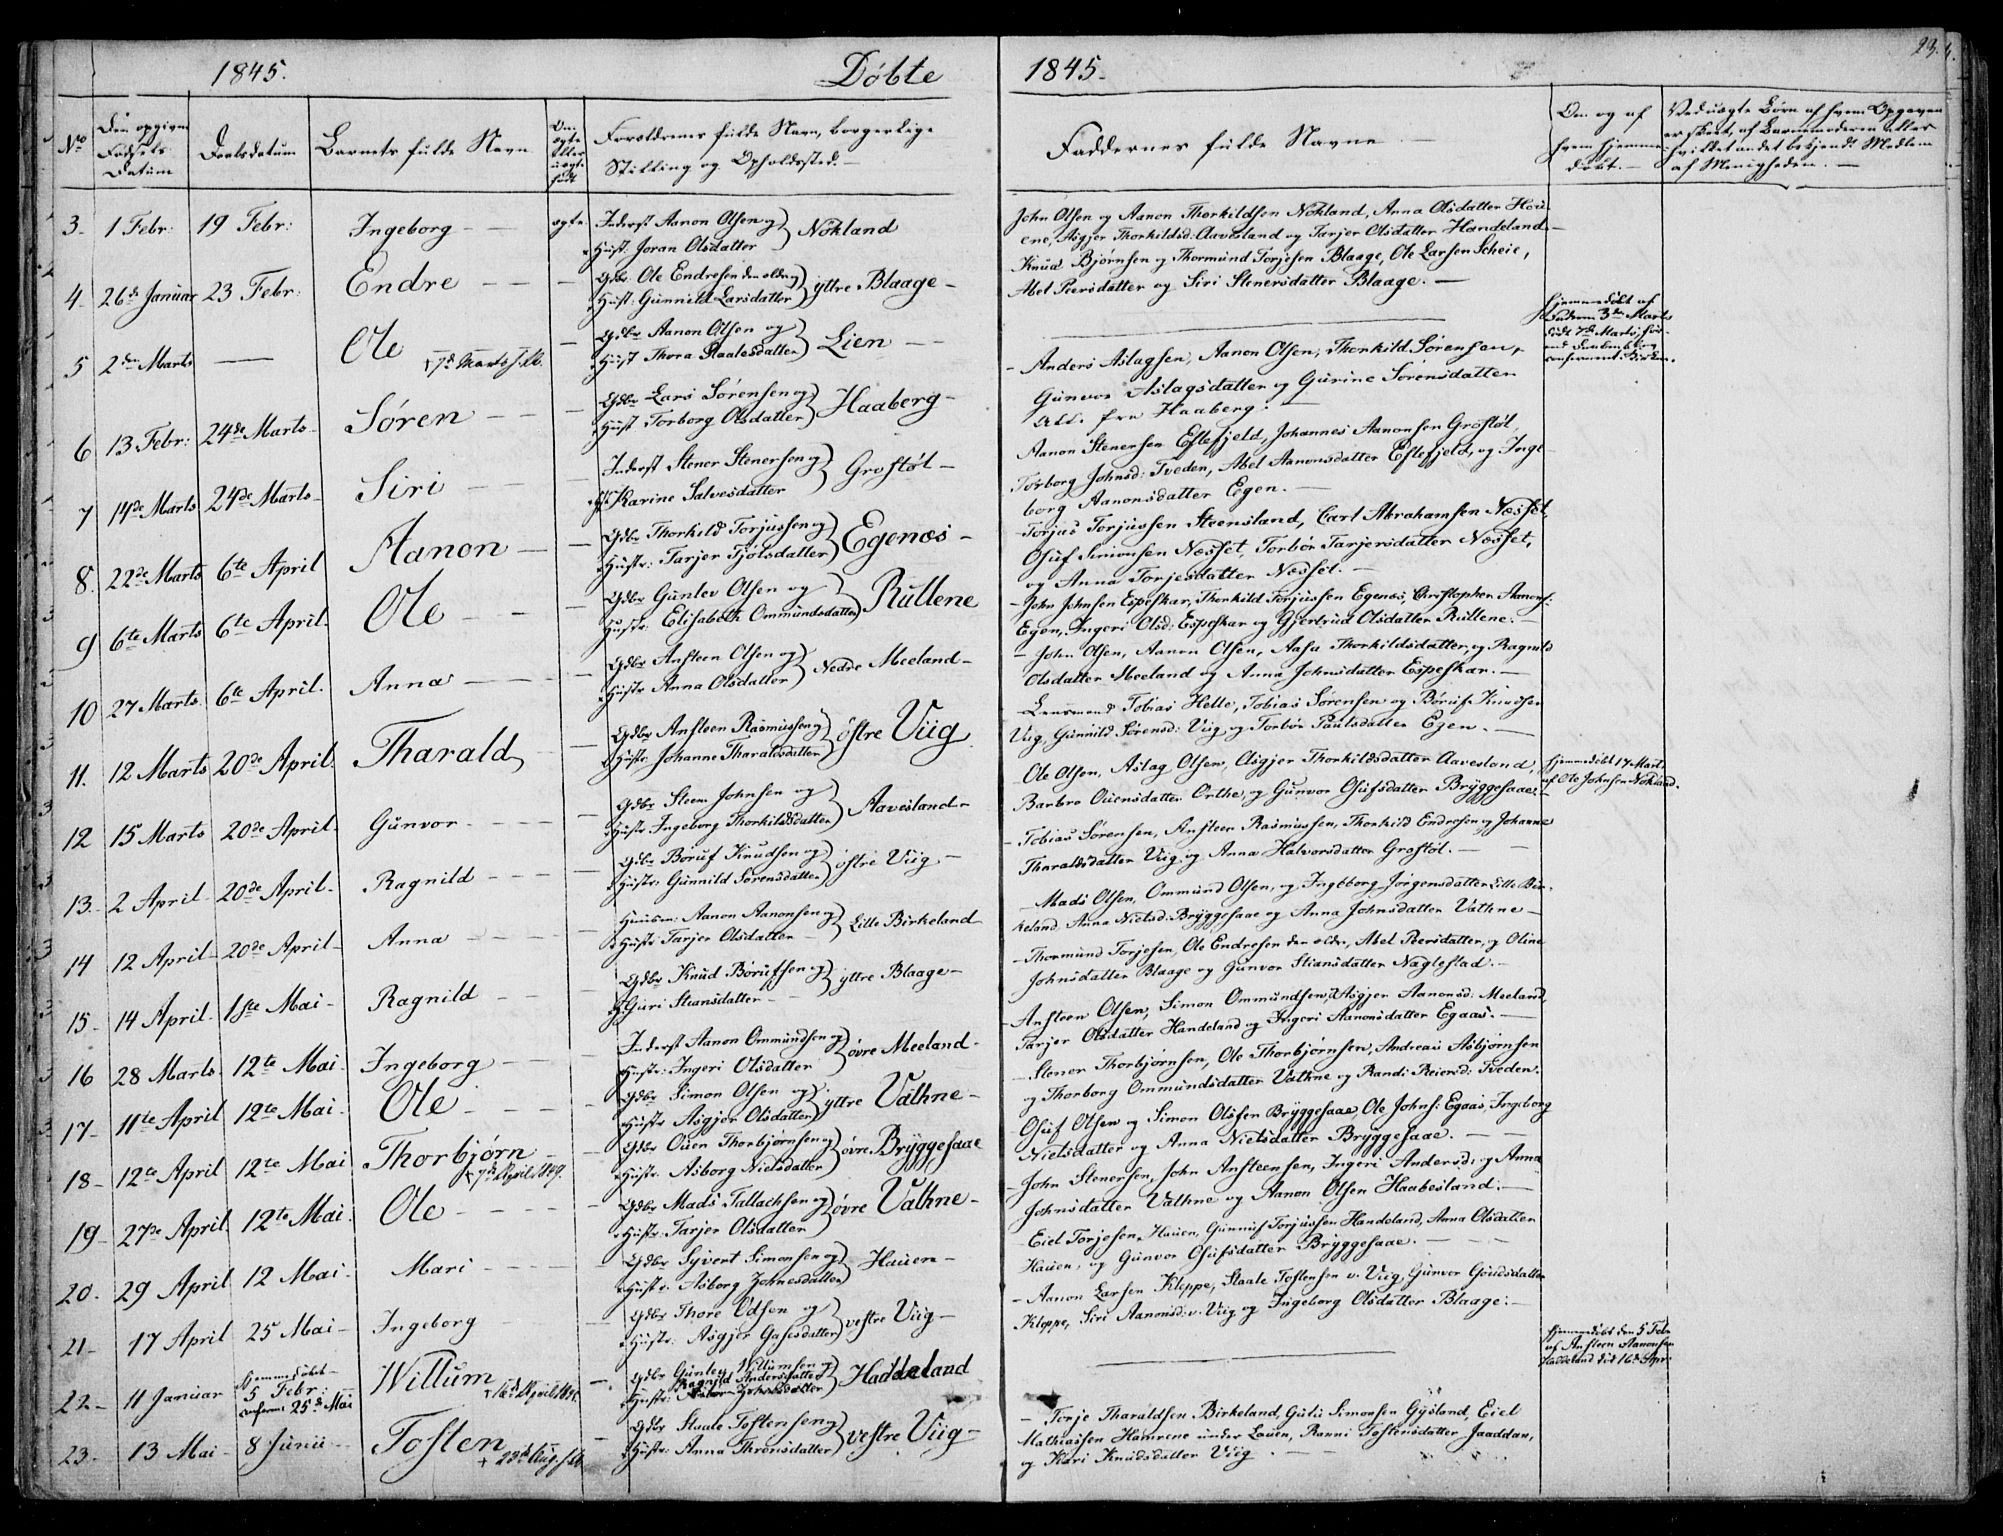 1845. Døbte
No
Den opgivne
Fødsels
Datum
Daabsdatum
Barnets fulde Navn
Om
ægte
eller
uægte
født
Forældrenes fulde Navn, borgerlige
Stilling og Opholdssted.
3. 1 Febr: 19 Febr: Ingeborg ægte Inderst Aanon Olsen og
Hust. Joran Olsdatter Nøkland
4. 26de Januar 23 Febr: Endre Gdbr Ole Endresen den eldre og
Hust: Gunnild Larsdatter yttre Blaage
5 2den Marts Ole Gdbr Aanon Olsen og
Hust Thora Staalesdatter Lien
6 13 Febr: 24de Marts Søren Gdbr Lars Sørensen og
Hust Torborg Olsdatter Haaberg
7 14de Marts 24de Marts Siri Inderst Stener Stenersen og
Karine Salvesdatter Grostøl
8. 22de Marts 6te April Aanon Gdbr Thorkild Torjussen og
Hustr: Tarjer Tjølsdatter Egenæs
9 6te Marts 6te April Ole Gdbr Gunlev Olsen og
Hustr: Elisabeth Ommundsdatter Rullene
10 27 Marts 6te April. Anna Gdbr Ansteen Olsen og
Hustr Anna Olsdatter Nedre Meeland
11. 12 Marts 20de April Tharald Gdbr Ansteen Rasmussen og
Hustr Johanne Tharaldsdatter østre Viig
12 15 Marts 20de April Gunvor Gdbr Steen Johnsen og
Hustr Ingeborg Thorkildsdatter Aavesland
13. 2 April 20de April Ragnild Gdbr Boruf Knudsen og
Hustr Gunnild Sørensdatter østre Viig
14 12 April 20de April Anna Huusm: Aanon Aanonsen og
Hustr Tarjer Olsdatter Lille Birkeland
15 14 April 1ste Mai Ragnild Gdbr Knud Børufsen og
Guri Stiansdatter yttre Blaage
16 28 Marts 12te Mai Ingeborg Inderst Aanon Ommundsen og
Hustr: Ingeri Olsdatter øvre Meeland
17 11te April 12te Mai Ole Gdbr Simon Olsen og
Hustr Asgjer Olsdatter yttre Vathne
18 12te April 12te Mai Thorbjørn Gdbr Ouen Thorbjørnsen og
† 7de April 1849. Hustr. Asborg Nielsdatter øvre Bryggesaae
19 27de April 12te Mai Ole Gdbr Mads Tallachsen og
Hustr: Tarjer Olsdatter øvre Vathne
20. 29 April 12 Mai Mari Gdbr Syvert Simonsen og
Hustr. Asborg Johnesdatter Hauen
21 17 April 25 Mai Ingeborg Gdbr Thore Odsen og
Hustr: Asgjer Gahesdatter vestre Viig
22 11 Januar hjemmedøbt
5 Febr:
25de Mai Willum Gdbr Gunlev Willumsen og
Ragnild Andersdatter
Hustr: Haddeland
23. 13 Mai 8 Junii Tosten Gdbr Staale Tostensen og
Hustr: Anna Thronsdatter vestre Viig
1845. 23.
Faddernes fulde Navne
Om og af
hvem hjemme
døbt.
Ved uægte Børn af hvem Opgaven
er skeet, af Barnemoderen eller
hvilket andet bekjendt Medlem
af Menigheden.
John Olsen og Aanon Thorkildsen Nøkland, Anna Olsdatter Hou-
ene, Asgjer Thorkildsd: Aavesland og Tarjer Olsdatter Handeland
Knud Bjørnsen og Thormund Torjesen Blaage, Ole Larsen Scheie,
Abel Peersdatter og Siri Stenersdatter Blaage.
Hjemmedøbt af
Faderen 3de Marts
død 7de Marts
Anders Aslagsen, Aanon Olsen, Thorkild Sørensen,
Gunvor Aslagsdatter og Gurine Sørensdatter
Alle fra Haaberg.
Aanon Stenersen Eftefjeld, Johannes Aanonsen Grostøl,
Torborg Johnsd: Tveden, Abel Aanonsdatter Eftefjeld, og Inge-
borg Aanonsdatter Egen.
Torjus Torjussen Steensland, Carl Abrahamsen Næsset,
Osuf Simonsen Næsset, Torbor Tarjersdatter Næsset,
og Anna Torjesdatter Næsset.
John Johnsen Espeskar, Thorkild Torjussen Egenæs, Christopher Aanons:
Egen, Ingeri Olsd: Espeskar og Gjertrud Olsdatter Rullene.
John Olsen, Aanon Olsen, Aasa Thorkildsdatter, og Ragnild
Olsdatter Meeland og Anna Johnsdatter Espeskar.
Lensmand Tobias Helle, Tobias Sørensen og Børuf Knudsen
Viig, Gunnild Sørensd: Viig og Torbor Paulsdatter Egen.
Ole Olsen, Aslag Olsen, Asgjer Thorkildsdatter Aavesland,
Barbro Ouensdatter Orthe, og Gunvor Osufsdatter Bryggesaae.
Hjemmedøbt 17 Marts
af Ole Johnsen Nøkland.
Tobias Sørensen, Ansteen Rasmussen, Thorkild Endresen og Johanne
Tharaldsdatter Viig og Anna Halvorsdatter Grostøl.
Mads Olsen, Ommund Olsen, og Ingeborg Jørgensdatter Lille Bir-
keland Anna Nielsd: Bryggesaae og Anna Johnsdatter Vathne
Thormund Torjesen, Ole Endresen den eldre, Abel Peersdatter, og Oline
Johnsdatter Blaage og Gunvor Stiansdatter Naglestad.
Ansteen Olsen, Simon Ommundsen, Asgjer Aanonsd: Meeland,
Tarjer Olsdatter Handeland og Ingeri Aanonsdatter Egaas.
Stener Thorbjørnsen, Ole Thorbjørnsen, Andreas Asbjørnsen
og Thorborg Ommundsdatter Vathne og Randi Reiersd: Tveden.
Osuf Olsen og Simon Olsen Bryggesaae, Ole Johns: Egaas, Ingeborg
Nielsdatter og Anna Nielsdatter Bryggesaae.
John Stenersen, John Ansteensen, Ingeri Andersd: og Anna
Johnsdatter Vathne og Aanon Olsen Haabesland.
Eiel Torjesen Hauen, Gunnuf Torjussen Handeland, Anna Olsdatter
Hauen, og Gunvor Osufsdatter Bryggesaae.
Aanon Larsen Kleppe, Staale Tostensen v. Viig, Gunvor Goudsdatter
Kleppe, Siri Aanonsd: v. Viig og Ingeborg Olsdatter Blaage.
Hjemmedøbt den 5 Febr
af Ansteen Aanonsen
Haddeland død 16de Apr:
Torje Tharaldsen Birkeland, Guli Simonsen Gysland, Eiel
Mathiassen Hamrene under Lauen, Ranni Tostensdatter Jaaddan,
og Kari Knudsdatter Viig